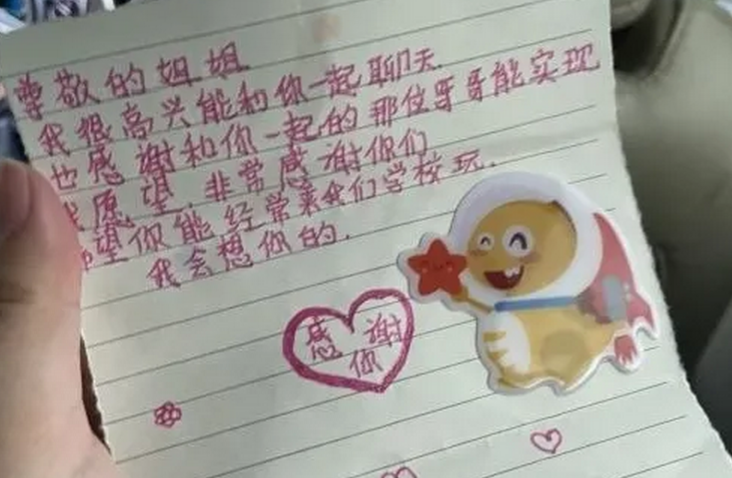 尊敬的姐姐
我很高兴能和你一起聊天.
也感谢和你一起的那位哥哥能实现
我愿望.非常感谢你们
希望你能经常来我们学校玩.
我会想你的.
感谢
你